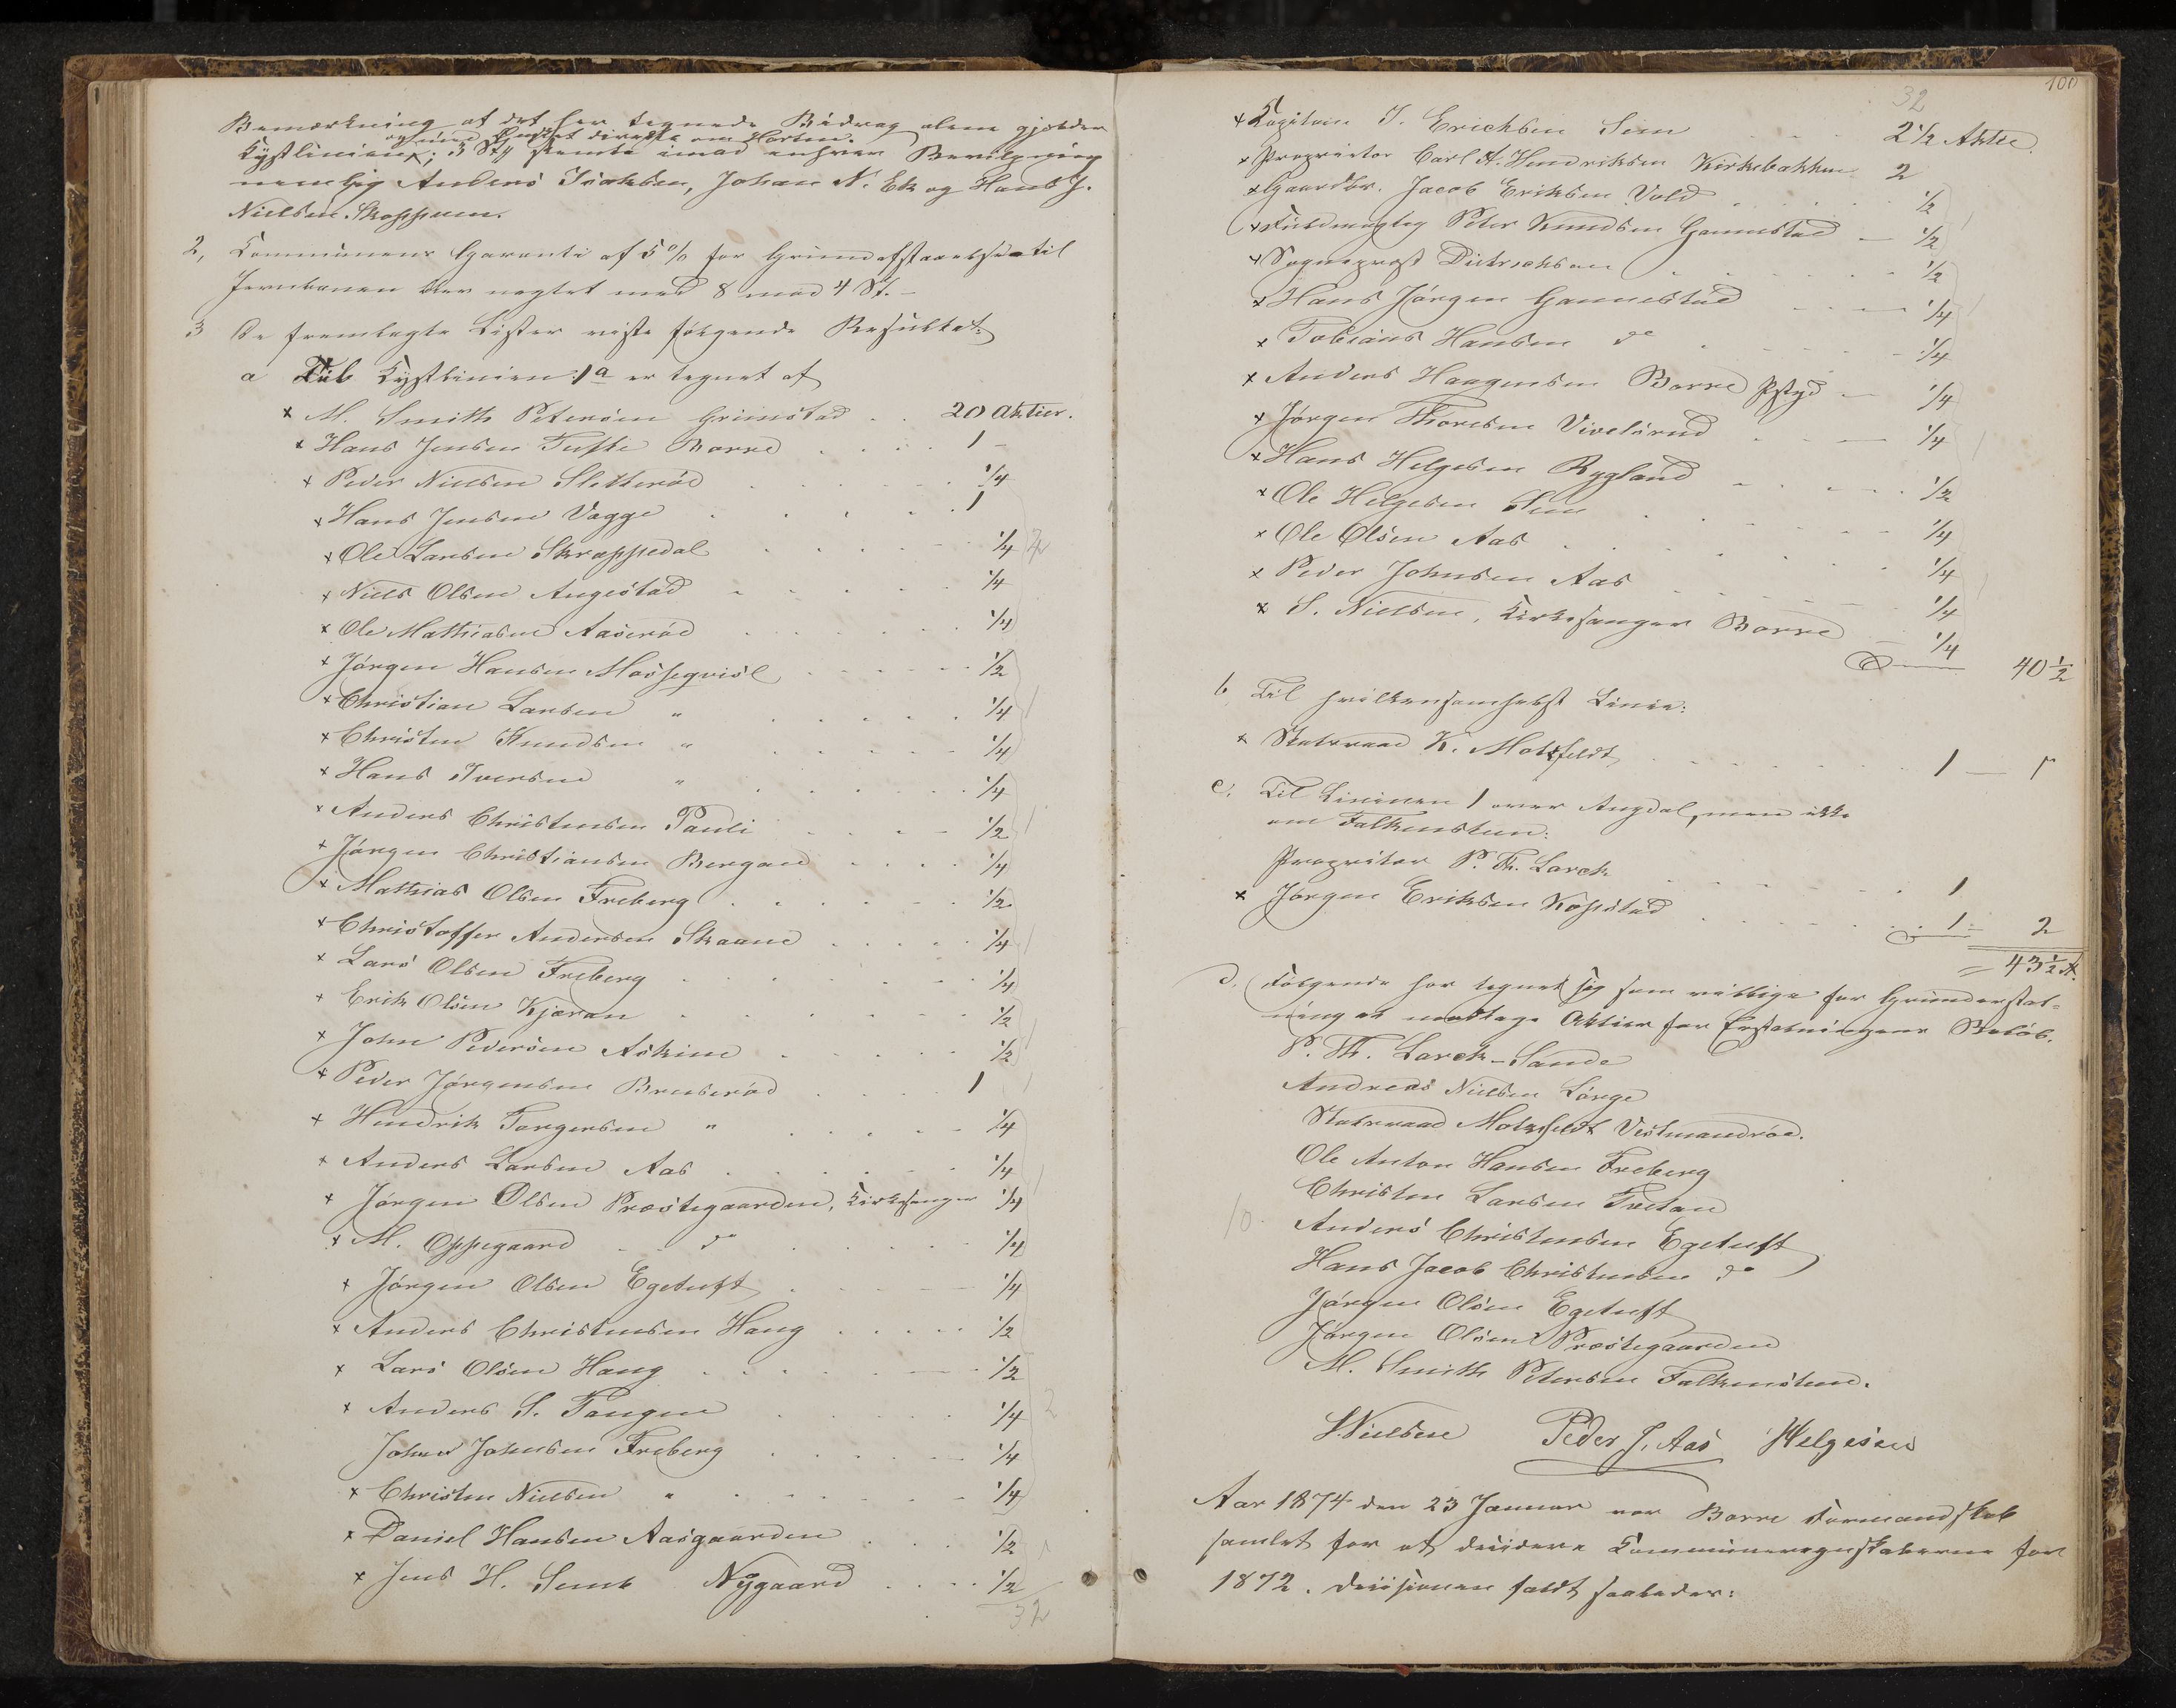 Bemærkning at det her tegnede Bidrag alene gjælder
og med Spidset directe om Horten.
Kystlinien; 3 St. stemte imod enhver Bevilgning
nemlig Anders Isaksen, Johan N. Ek og Hans J.
Nielsen Skoppum.
2, Communens Garanti af 5% for Grundafstaaelse til
Jernbanen blev negtet med 8 mod 4 St. –
3 De fremlagte Lister viste følgende Resultat:
a Til Kystlinien 1a er tegnet af
x M. Smith Petersen Grimstad . . 20 Aktier.
x Hans Jensen Tufte Borre . . . . 1 –
x Peder Nielsen Sletterød . . . . 1/4
x Hans Jensen Vagge . . . . 1
x Ole Larsen Skrappedal . . . . 1/4
x Niels Olsen Angestad . . . . 1/4
x Ole Mathiasen Aaserød . . . . 1/4
x Jørgen Hansen Massequisl . . . . 1/2
x Christian Larsen " . . . . 1/4
x Christen Knudsen " . . . . 1/4
x Hans Iversen " . . . . 1/4
x Anders Christensen Pauli . . . . 1/2
x Jørgen Christiansen Bergan . . . . 1/4
x Mathias Olsen Freberg . . . . 1/2
x Christoffer Andersen Skaane . . . . 1/4
x Lars Olsen Freberg . . . . 1/4
x Erik Olsen Kjæran . . . . 1/2
x John Pedersen Askim . . . . 1/2
x Peder Jørgensen Bruserød . . . . 1
x Hendrik Torgersen " . . . . 1/4
x Anders Larsen Aas . . . . 1/4
x Jørgen Olsen Præstegaarden, Kirkesanger 1/4
x M. Oppegaard do . . . . 1/4
x Jørgen Olsen Egetuft . . . . 1/4
x Anders Christensen Haug . . . . 1/2
x Lars Olsen Haug . . . . 1/2
x Anders S. Tangen . . . . 1/4
Johan Johnsen Freberg . . . . 1/4
x Christen Nielsen " . . . . 1/4
x Daniel Hansen Aasgaarden . . . 1/2
x Jens H. Semb Nygaard . . . . 1/2
32
100
32
x Kapitain J. Erichsen Sem . . . 2 1/2 Aktie.
x Proprietær Carl A. Hendriksen Kirkebakken 2
x Gaardbr. Jacob Eriksen Vold . . . . 1/2
x Fuldmægtig Peter Knudsen Gannestad – 1/2
x Sogneprest Dietrichson . . . . 1/2
x Hans Jørgen Gannestad . . . . 1/4
x Tobias Hansen do . . . . 1/4
x Anders Haagensen Borre Pstgd – 1/4
x Jørgen Thoresen Vivelsrud . . . . 1/4
x Hans Helgesen Rygland . . . . 1/2
x Ole Helgesen Sem . . . . 1/4
x Ole Olsen Aas . . . . 1/4
x Peder Johnsen Aas . . . . 1/4
x S. Nielsen, Kirkesanger Borre – 1/4
40 1/2
b Til hvilkensomhelst Linie:
x Statsraad K. Motzfeldt . . . . 1 – 1
c. Til Linien 1 over Augdal, men ikke
om Falkensten:
Proprietær P. Th. Larck . . . . 1
x Jørgen Eriksen Kopstad . . . . 1 = 2
= 43 1/2 A.
d. Følgende har tegnet sig som villige for Grunderstat-
ning at modtage Aktier for Erstatningens Beløb.
P. Th. Larck – Sande
Andreas Nielsen Lørge
Statsraad Motzfeldt Vestmandrød.
Ole Anton Hansen Freberg
Christen Larsen Tveitan
10. Anders Christensen Egetuft
Hans Jacob Christensen do
Jørgen Olsen Egetuft
Jørgen Olsen Præstegaarden
M. Smith Petersen Falkensten.
S. Nielsen Peder J. Aas Helgesen
Aar 1874 den 23 Januar var Borre Formandskab
samlet for at decidere Communeregnskaberne for
1872. Decisionen faldt saaledes: